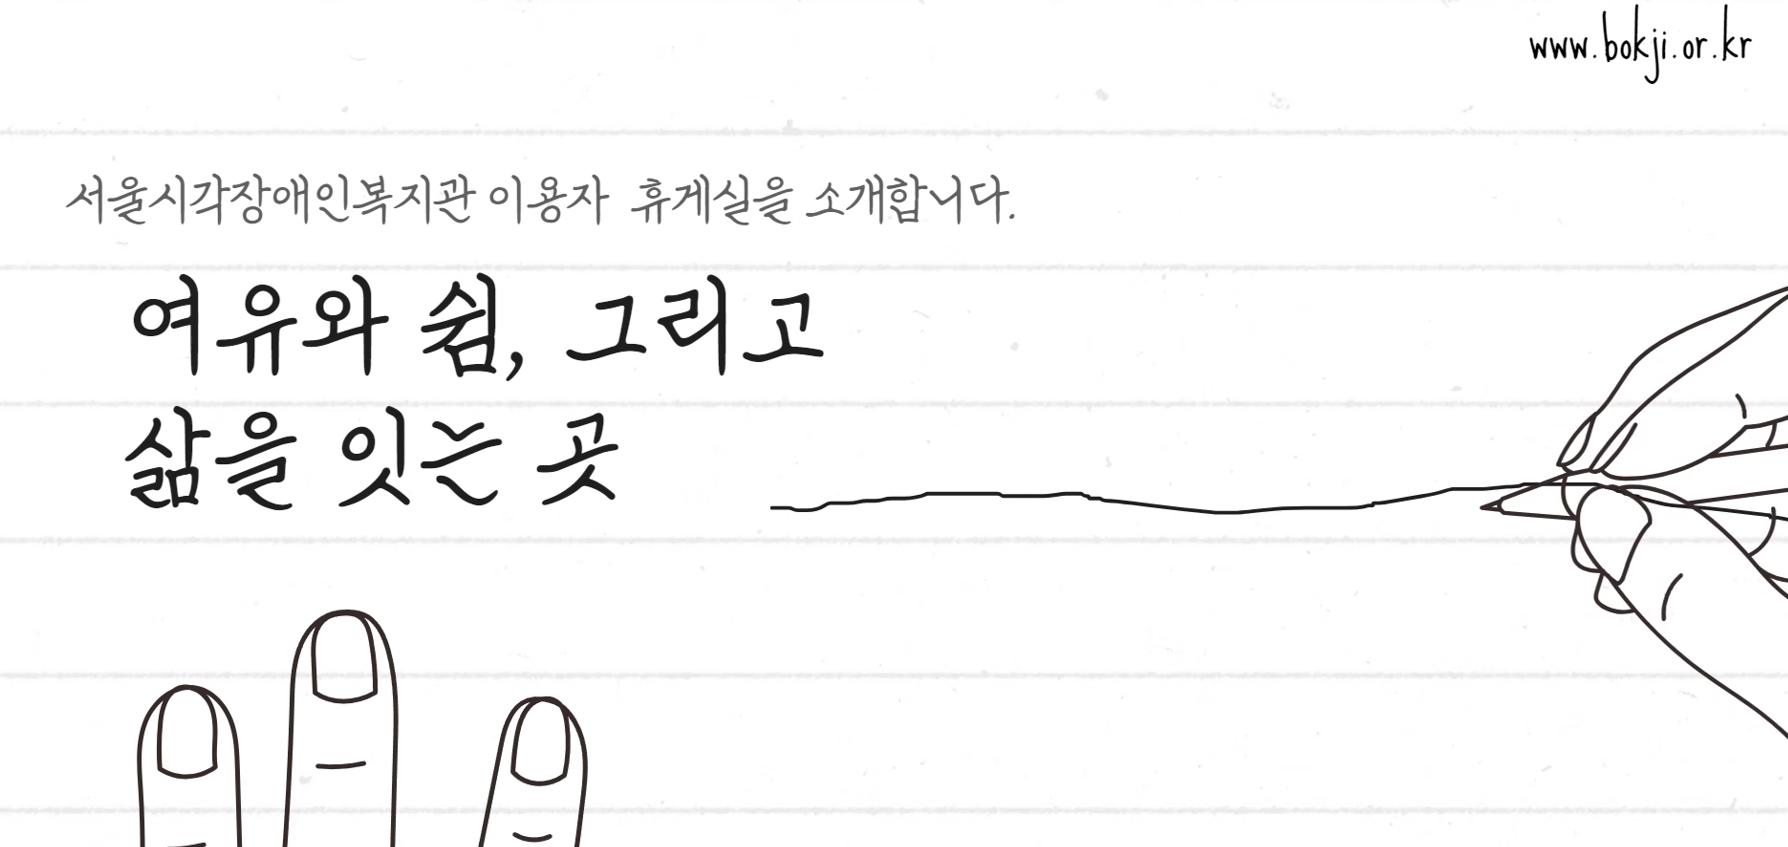 www.bokji.or.kr
서울시각장애인복지관 이용자 휴게실을 소개합니다.
여유와 쉼, 그리고
삶을 잇는 곳